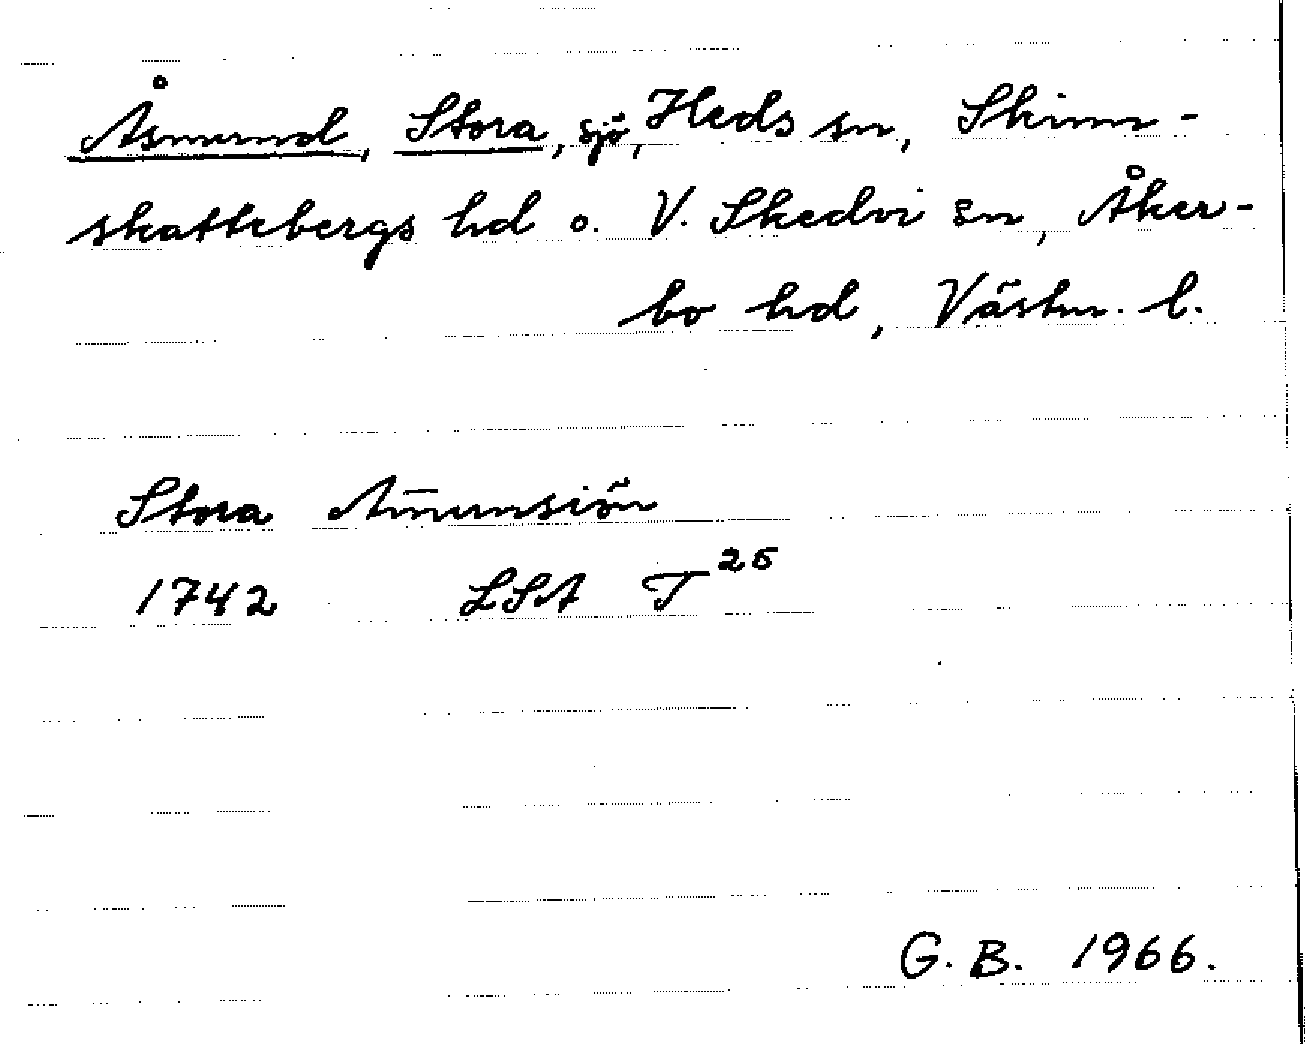 Åsmund, Stora, sjö, Heds sn, Skinn-
skattebergs hd o. V. Skedvi sn, Åker-
bo hd, Västm. l.
Stora Am̄unsiön
1742 LSA T 25
G. B. 1966.